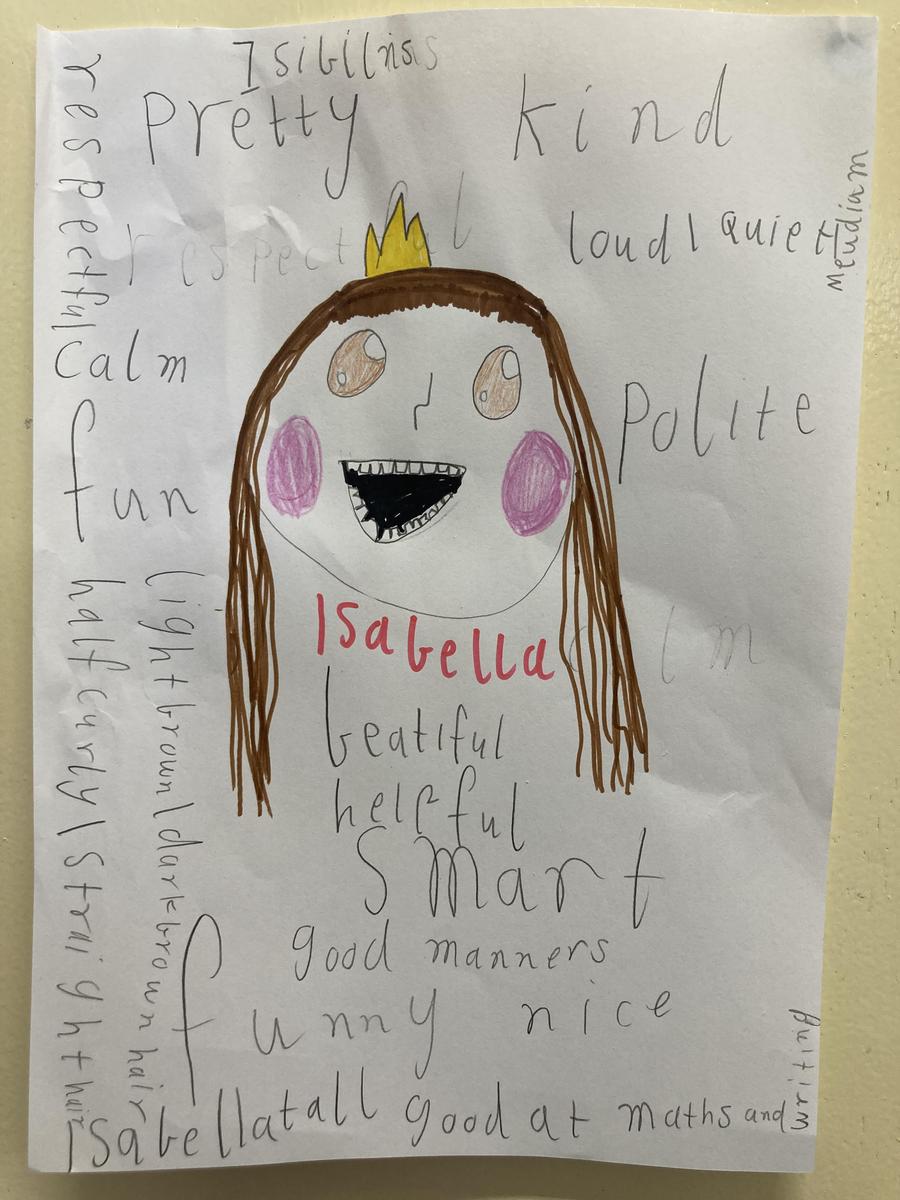 respectful
Pretty
kind
respectful
loud | quiet
Meudiam
calm
Polite
fun
Isabella
half curly | straight hair
light brown | dark brown hair
beatiful
helpful
smart
good manners
funny nice
Isabella tall good at maths and
writing